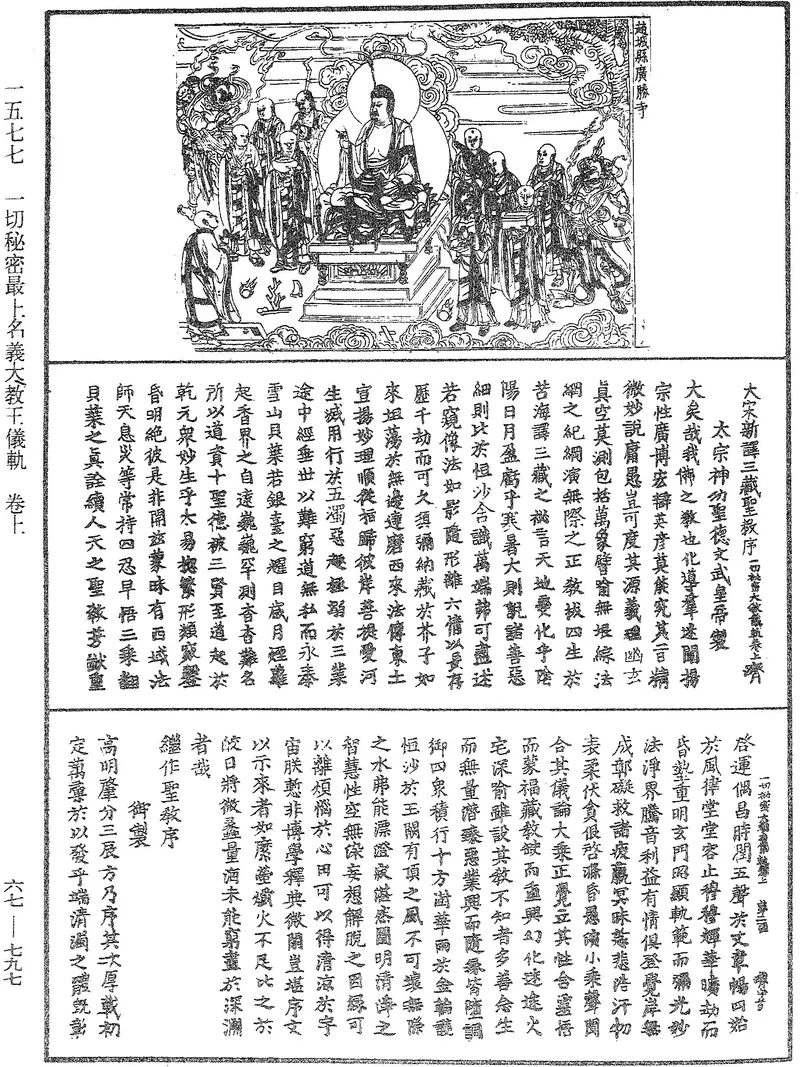 趙城縣廣勝寺
大宋新譯三藏聖教序
太宗神功聖德文武皇帝製
大矣哉我佛之教也化導羣迷闡揚
宗性廣博宏辯英彥莫能究其旨精
微妙說庸愚豈可度其源義理幽玄
真空莫測包括萬象譬喻無垠綜法
網之紀綱演無際之正教拔四生於
苦海譯三藏之祕言天地變化乎陰
陽日月盈虧乎寒暑大則說諸善惡
細則比於恒沙含識萬端弗可盡述
若窺像法如影隨形離六情以長存
歷千劫而可久須彌納藏於芥子如
來坦蕩於無邊達磨西來法傳東土
宣揚妙理順從指歸彼岸菩提愛河
生滅用行於五濁惡趣拯溺於三業
途中經垂世以難窮道無私而永泰
雪山貝葉若銀臺之耀目歲月煙蘿
起香界之自遠巍巍罕測杳杳難名
所以道資十聖德被三賢至道起於
乾元衆妙生乎太易揔繁形類竅鑿
昏明絕彼是非開兹蒙昧有西域法
師天息災等常持四忍早悟三乘翻
貝葉之真詮續人天之聖教芳猷重
啓運偶昌時閏五聲於文章暢四始
於風律堂堂容止穆穆輝華曠劫而
昏墊重明玄門昭顯軌範而彌光妙
法淨界騰音利益有情俱登覺岸無
成鄣礙救諸疲羸冥昧慈悲浩汗物
表柔伏貪佷啓滌昏愚演小乘聲聞
合其儀論大乘正覺立其性含靈悟
而蒙福藏教缺而重興幻化迷途火
宅深喻雖設其教不知者多善念生
而無量潛臻惡業興而隨緣皆墮調
御四衆積行十方澍華雨於金輪護
恒沙於玉闕有頂之風不可壞無際
之水弗能漂澄寂湛然圓明清淨之
智慧性空無染妄想解脫之因緣可
以離煩惱於心田可以得清涼於宇
宙朕慙非博學釋典微閑豈堪序文
以示來者如縻螢爝火不足比之於
皎日將微蠡量海未能窮盡於深淵
者哉
繼作聖教序
御製
高明肇分三辰方乃序其次厚載初
定萬彙於以發乎端清濁之體旣彰
一五七七 一切秘密最上名義大教王儀軌 卷上
六七——七九七